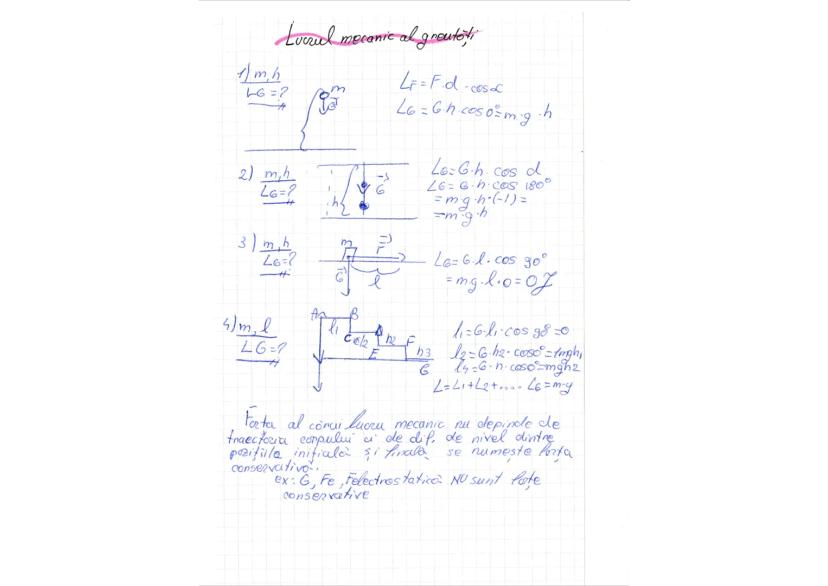 Lucrul mecanic al greutății
1) m, h
LG = ?
m
G
LF = F · d · cos α
LG = G · h · cos 0° = m · g · h
2) m, h
LG = ?
h
G
LG = G · h · cos d
LG = G · h · cos 180°
= m g · h · (-1) =
= m · g · h
3) m, h
LG = ?
m
F
G
l
LG = G · l · cos 90°
= mg · l · 0 = 0 J
4) m, l
LG = ?
A B
l1
C h2 F
E h3
G
l1 = G · l1 · cos 90° = 0
l2 = G · h2 · cos 0° = mgh1
l4 = G · h · cos 0° = mgh2
L = L1 + L2 + .... LG = m · g
Forța al cărui lucru mecanic nu depinde de
traectoria corpului ci de dif. de nivel dintre
pozițiile inițială și finală se numește forță
conservativă.
ex: G, Fe, Felectrostatică NU sunt forțe
conservative